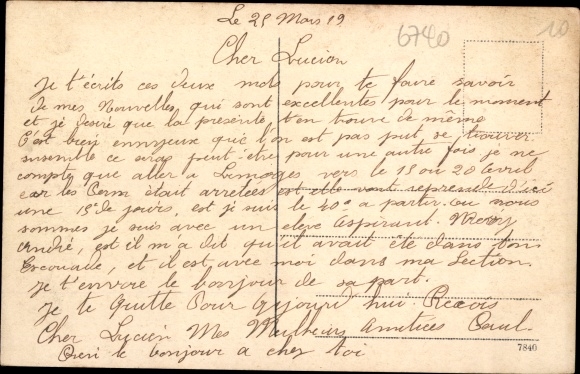 Le 25 Mars 19
6740
10
Cher Lucien
Je t'écrits ces deux mots pour te faire savoir
de mes Nouvelles qui sont excellentes pour le moment
et je désire que la présente t'en trouve de même
C'est bien ennyeux que l'on est pas put se trouver
ensemble ce sera peut-etre pour une autre fois je ne
compte que aller a Limoges vers le 15 ou 20 Avril
car les Perm était arretées est elle vont reprendre d'ici
une 15e de jours, est je suis le 40e a partir. ou nous
sommes je suis avec un eleve Aspirant.
André, est il m'a dit qu'il avait été dans ton
Escouade, et il est avec moi dans ma Section.
Je t'envoie le bonjour de sa part.
Je te Quitte Pour aujourd hui. Recois
Cher Lucien Mes Meilleurs Amitiées Paul.
le bonjour a chez toi
7840